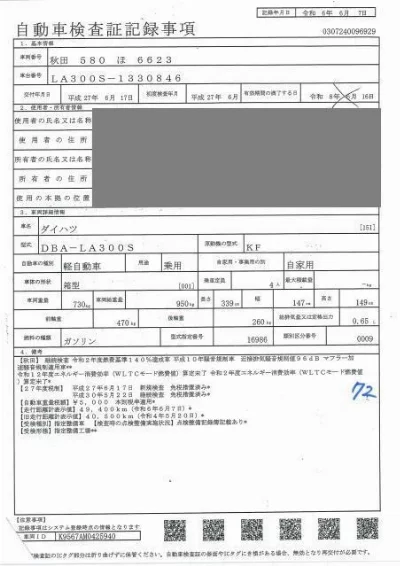 記録年月日 令和 6年 6月 7日
自動車検査証記録事項
0307240096929
1. 基本情報
車両番号 秋田 580 ほ 6623
車台番号 LA300S-1330846
交付年月日 平成27年 6月17日 初度検査年月 平成27年 6月 有効期間の満了する日 令和 8年 6月16日
2. 使用者・所有者情報
使用者の氏名又は名称
使用者の住所
所有者の氏名又は名称
所有者の住所
使用の本拠の位置
3. 車両詳細情報
車名 ダイハツ [151]
型式 DBA-LA300S 原動機の型式 KF
自動車の種別 軽自動車 用途 乗用 自家用・事業用の別 自家用
車体の形状 箱型 [001] 乗車定員 4人 最大積載量 -kg
車両重量 730kg 車両総重量 950kg 長さ 339cm 幅 147cm 高さ 149cm
前軸重 470kg 後軸重 260kg 総排気量又は定格出力 0.65 L
燃料の種類 ガソリン 型式指定番号 16986 類別区分番号 0009
4. 備考
【秋田】 継続検査 令和2年度燃費基準140%達成車 平成10年騒音規制車 近接排気騒音規制値96dB マフラー加
速騒音規制適用車**
令和12年度エネルギー消費効率(WLTCモード燃費値)算定未了 令和2年度エネルギー消費効率(WLTCモード燃費値)
算定未了*
【27年度税制】 平成27年6月17日 新規検査 免税措置済み*
平成30年5月22日 継続検査 免税措置済み*
【自動車重量税額】¥5,000 本則税率適用*
【走行距離計表示値】49,400km(令和6年6月7日)*
【旧走行距離計表示値】40,500km(令和4年5月20日)*
【受検種別】指定整備車 【検査時の点検整備実施状況】点検整備記録簿記載あり*
【受検形態】指定整備工場**
72
【注意事項】
記録事項はシステム登録時点の情報となります
車両ID K9567AM0425940
*検査証のICタグ部分は折り曲げずに保管してください。自動車検査証の券面や